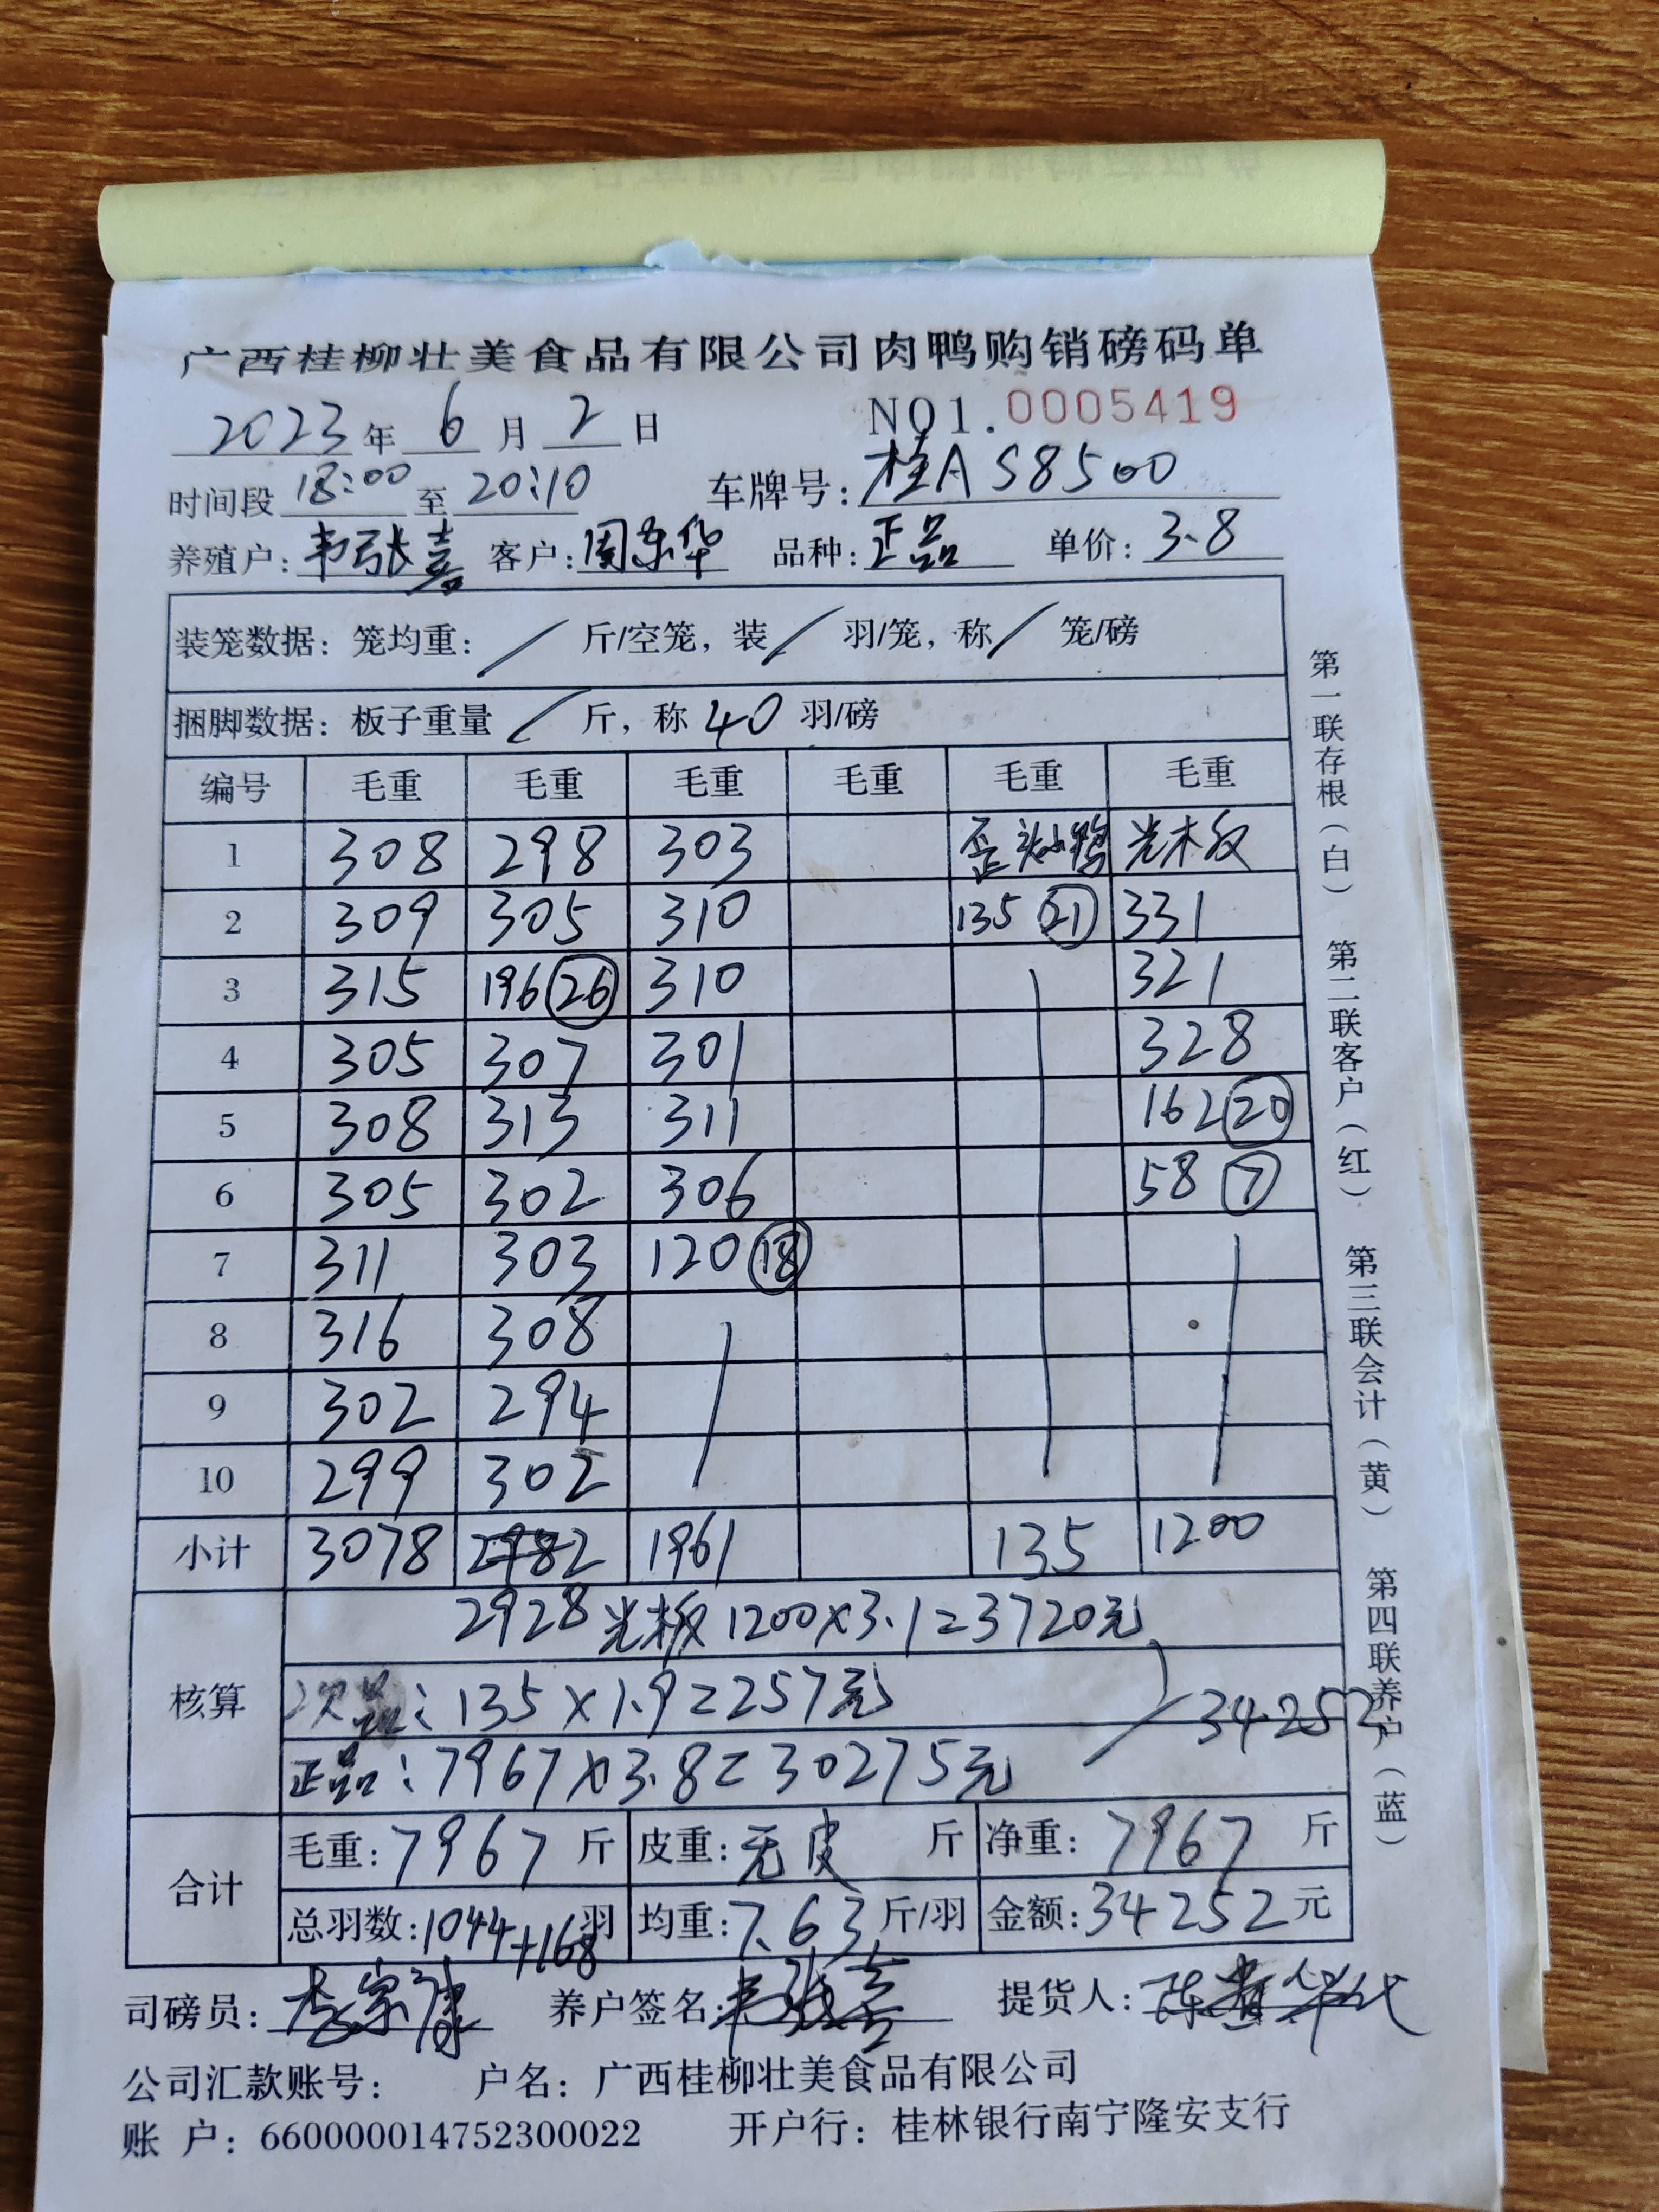 广西桂柳壮美食品有限公司肉鸭购销磅码单
2023年 6 月 2 日 NO1.0005419
时间段 18:00 至 20:10 车牌号: 桂A S8500
养殖户: 韦张嘉 客户: 周东华 品种: 正品 单价: 3.8
装笼数据: 笼均重: / 斤/空笼, 装 / 羽/笼, 称 / 笼/磅
捆脚数据: 板子重量 / 斤, 称 40 羽/磅
编号 毛重 毛重 毛重 毛重 毛重 毛重
1 308 298 303 歪头小鸭 光木板
2 309 305 310 135 21 331
3 315 196 26 310 321
4 305 307 301 328
5 308 313 311 162 20
6 305 302 306 58 7
7 311 303 120 18
8 316 308
9 302 294
10 299 302
小计 3078 2982 1961 135 1200
2928 光板 1200×3.1=3720元
核算 次品: 135×1.9=257元 34252
正品: 7967×3.8=30275元
合计 毛重: 7967 斤 皮重: 无皮 斤 净重: 7967 斤
总羽数: 1044+168 羽 均重: 7.63 斤/羽 金额: 34252 元
司磅员: 李宗康 养户签名: 韦张嘉 提货人: 陈贵华代
公司汇款账号: 户名: 广西桂柳壮美食品有限公司
账 户: 660000014752300022 开户行: 桂林银行南宁隆安支行
第一联存根(白) 第二联客户(红) 第三联会计(黄) 第四联养户(蓝)